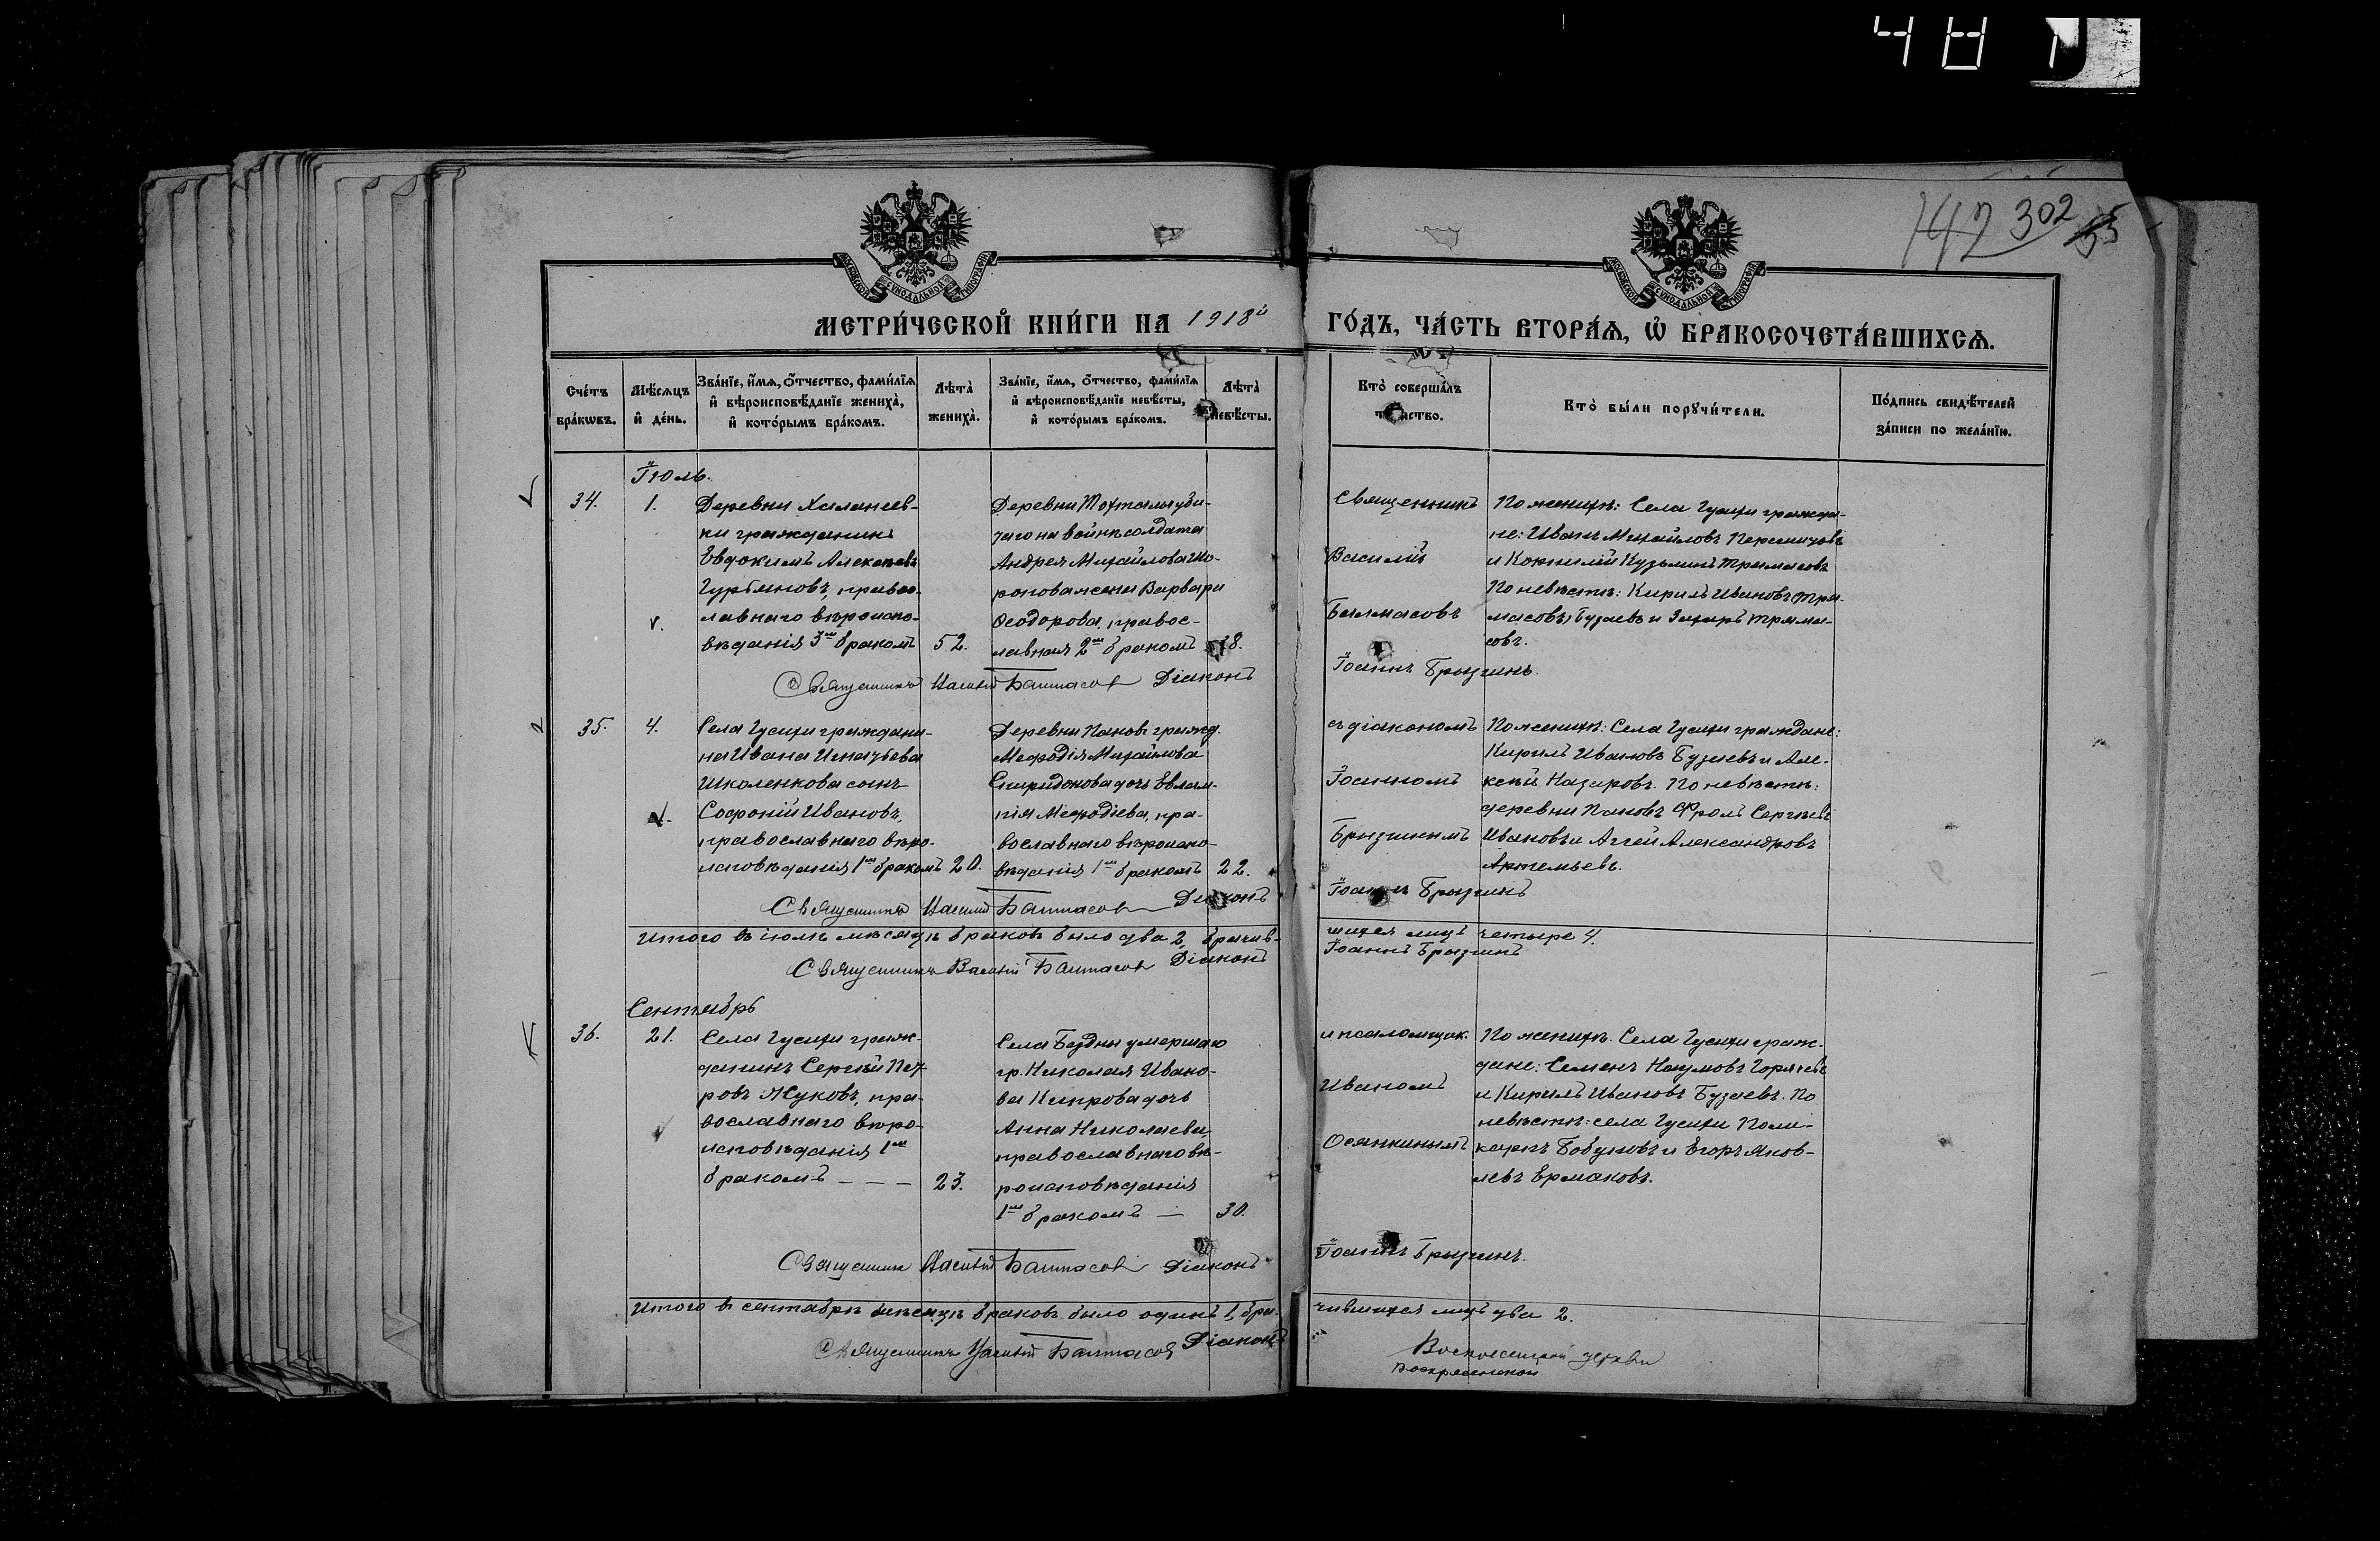 481
147 302 55
МОСКОВСКОЙ СѴНОДАЛЬНОЙ ТИПОГРАФІИ
МОСКОВСКОЙ СѴНОДАЛЬНОЙ ТИПОГРАФІИ
МЕТРИ́ЧЕСКОЙ КНИ́ГИ НА 1918й ГО́ДЪ, ЧА́СТЬ ВТОРА́Ѧ, Ѡ҆ БРАКОСОЧЕТА́ВШИХСѦ.
Сче́тъ бра́кѡвъ.
Мѣ́сѧцъ и҆ де́нь.
Зва́нїе, и҆́мѧ, о҆́тчество, фами́лїѧ и҆ вѣроисповѣ́данїе жениха̀, и҆ кото́рымъ бра́комъ.
Лѣта̀ жениха̀.
Зва́нїе, и҆́мѧ, о҆́тчество, фами́лїѧ и҆ вѣроисповѣ́данїе невѣ́сты, и҆ кото́рымъ бра́комъ.
Лѣта̀ невѣ́сты.
Кто̀ соверша́лъ таинство.
Кто̀ бы́ли порꙋчи́тели.
По́дпись свидѣ́телей за́писи по жела́нїю.
Іюль.
34.
1.
Деревни Халанеев-
ки гражданинъ
Евдокимъ Алексѣевъ
Гурьяновъ, правос-
лавнаго вѣроиспо-
вѣданія 3мъ бракомъ
52.
Деревни
таго на войнѣ солдата
Андрея Михайлова
жена Варвара
Ѳеодорова, правос-
лавная 2мъ бракомъ
Священникъ
Василій
Балмасовъ
По женихѣ: Села Гусихи гражда-
не: Иванъ Михайловъ
и Корнилій Кузьминъ Трямасовъ
По невѣстѣ: Кирилъ Ивановъ Тря-
масовъ, Бузаевъ и Захаръ Тряма-
совъ.
Священникъ Василій Балмасовъ Діаконъ Іоаннъ Брызгинъ.
35.
4.
Села Гусихи граждани-
на Ивана Игнатьева
Школенкова сынъ
Софоній Ивановъ,
православнаго вѣро-
исповѣданія 1мъ бракомъ
20.
Деревни Пановъ гражд.
Меѳодія Михайлова
Спиридонова дочь Евлам-
пія Меѳодіева, пра-
вославнаго вѣроиспо-
вѣданія 1мъ бракомъ
22.
съ діакономъ
Іоанномъ
Брызгинымъ
По женихѣ: Села Гусихи граждане:
Кирилъ Ивановъ Бузаевъ и Але-
ксѣй Назаровъ. По невѣстѣ:
деревни Пановъ Фролъ Сергѣевъ
Ивановъ и Аггей Александровъ
Артемьевъ.
Священникъ Василій Балмасовъ Діаконъ Іоаннъ Брызгинъ
Итого въ іюлѣ мѣсяцѣ браковъ было два 2, брачив-
шихся лицъ четыре 4.
Священникъ Василій Балмасовъ Діаконъ Іоаннъ Брызгинъ
Сентябрь
36.
21.
Села Гусихи граж-
данинъ Сергѣй Пет-
ровъ Жуковъ, пра-
вославнаго вѣро-
исповѣданія 1мъ
бракомъ – – –
23.
Села Бездны умершаго
гр. Николая Ивано-
ва Кипрова дочь
Анна Николаева,
православнаго вѣ-
роисповѣданія
1мъ бракомъ –
30.
и псаломщик.
Иваномъ
Осянкинымъ
По женихѣ. Села Гусихи граж-
дане: Семенъ Наумовъ Горячевъ
и Кирилъ Ивановъ Бузаевъ. По
невѣстѣ: села Гусихи Поли-
карпъ Бобуновъ и Егоръ Яков-
левъ Ермаковъ.
Священникъ Василій Балмасовъ Діаконъ Іоаннъ Брызгинъ.
Итого въ сентябрѣ мѣсяцѣ браковъ было одинъ 1, бра-
чившихся лицъ два 2.
Священникъ Василій Балмасовъ Діаконъ
церкви
Воскресенской